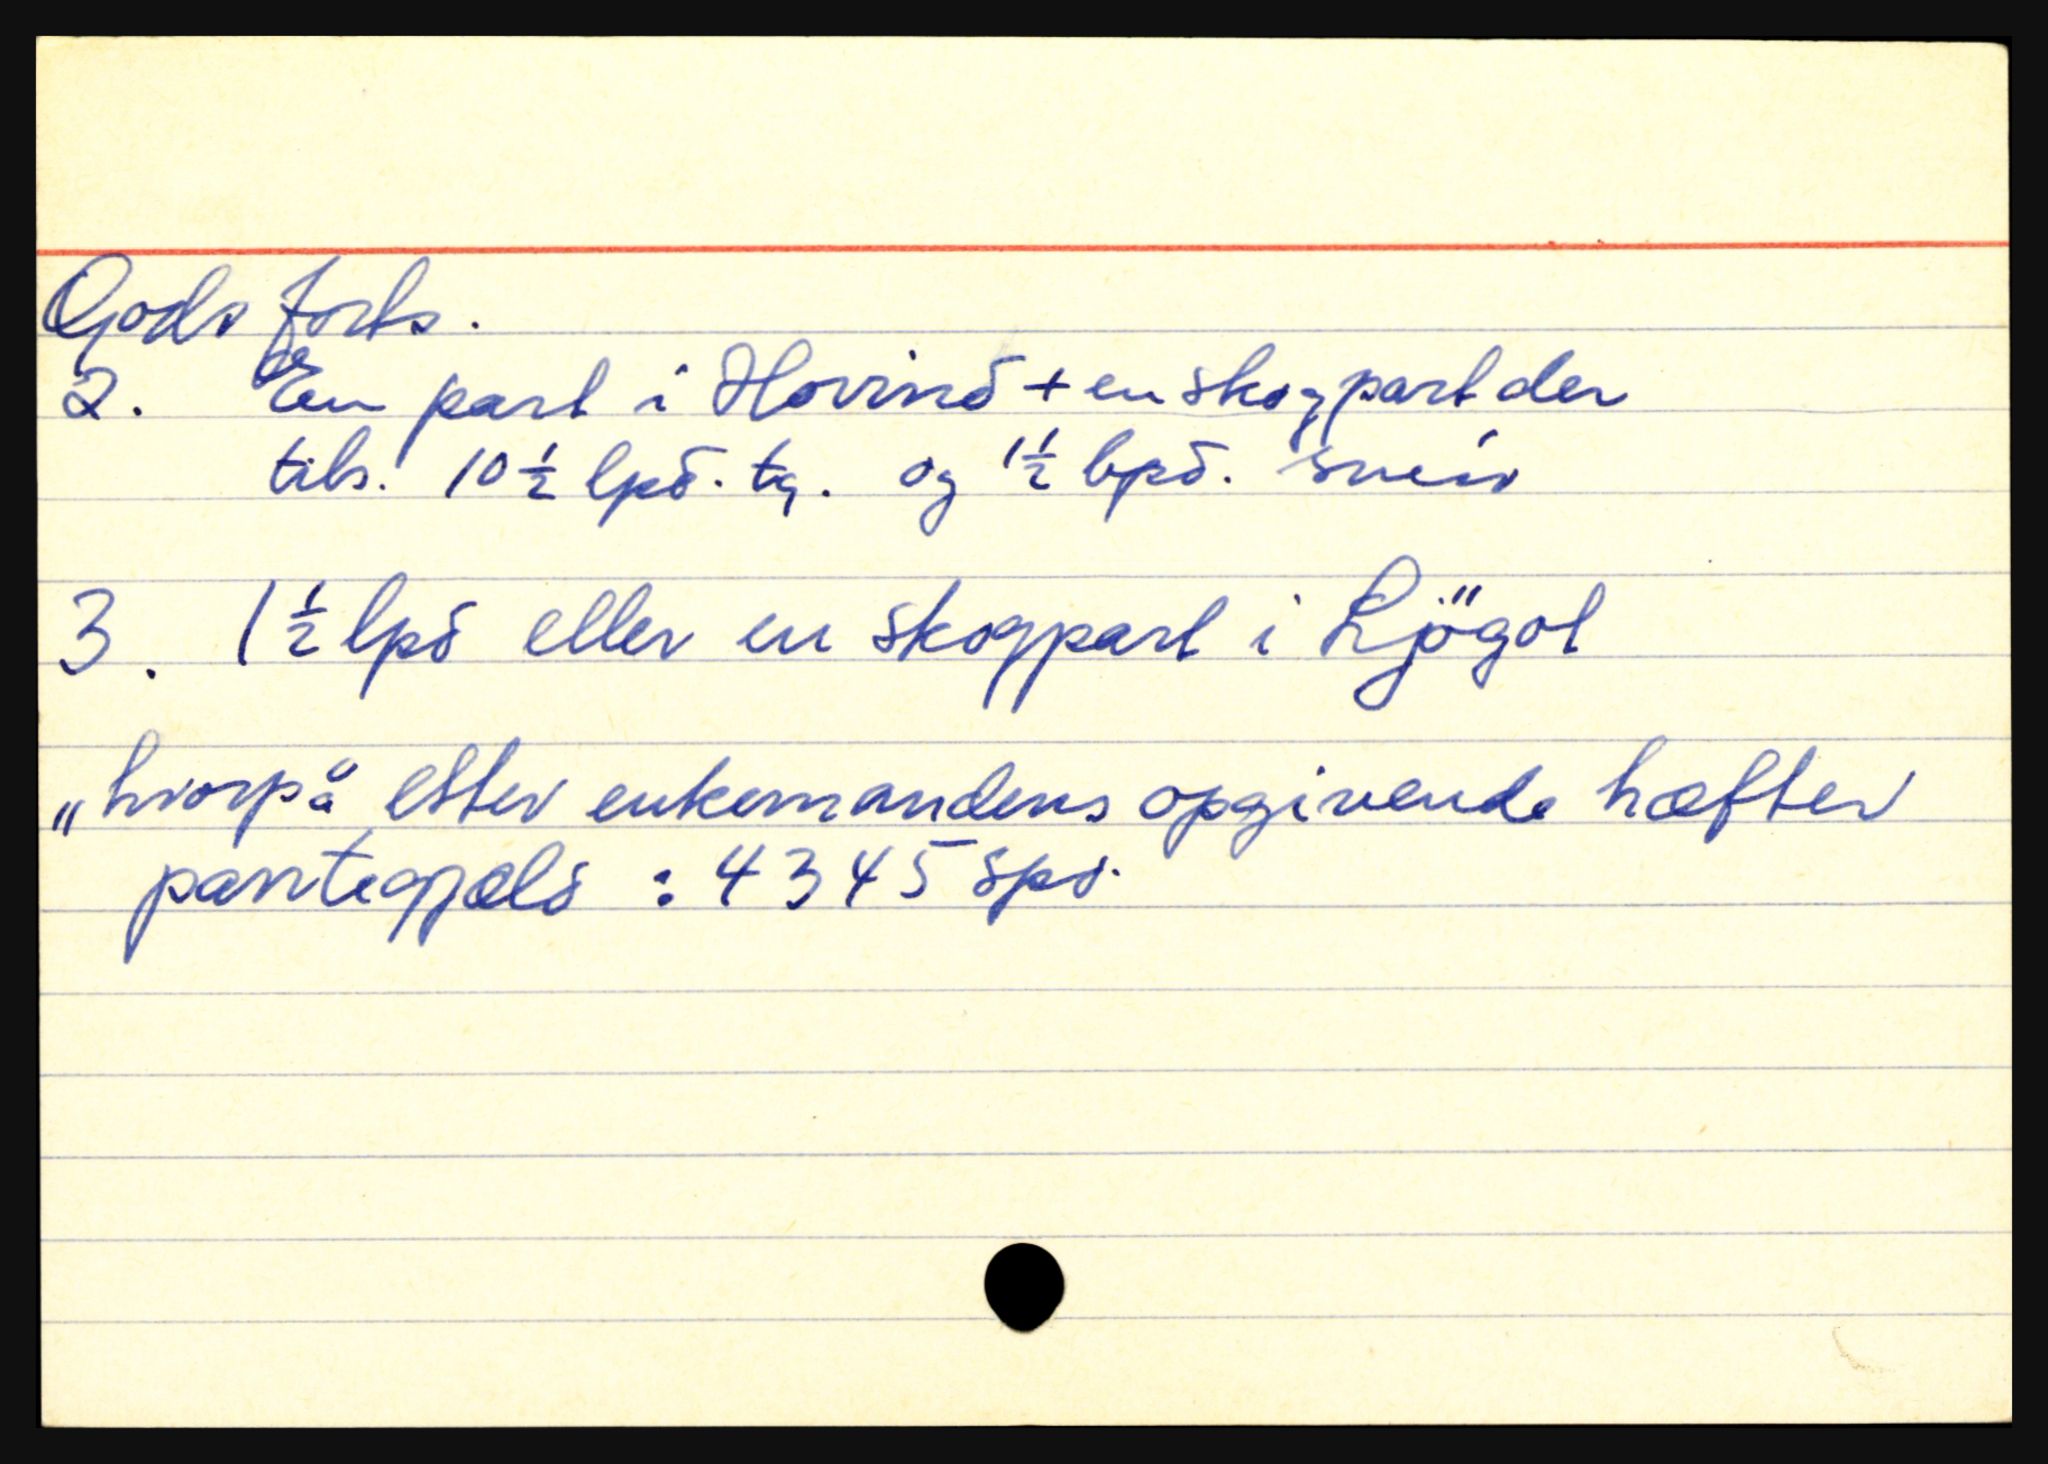 Gods forts.
2. En part i Hovind + en skogpart der
tils. 10 1/2 lpd. tg. og 1 1/2 bpd. smør
3. 1 1/2 lpd eller en skogpart i Ljögot
„hvorpå efter enkemandens opgivende hæfter
pantegjæld : 4345 spd.